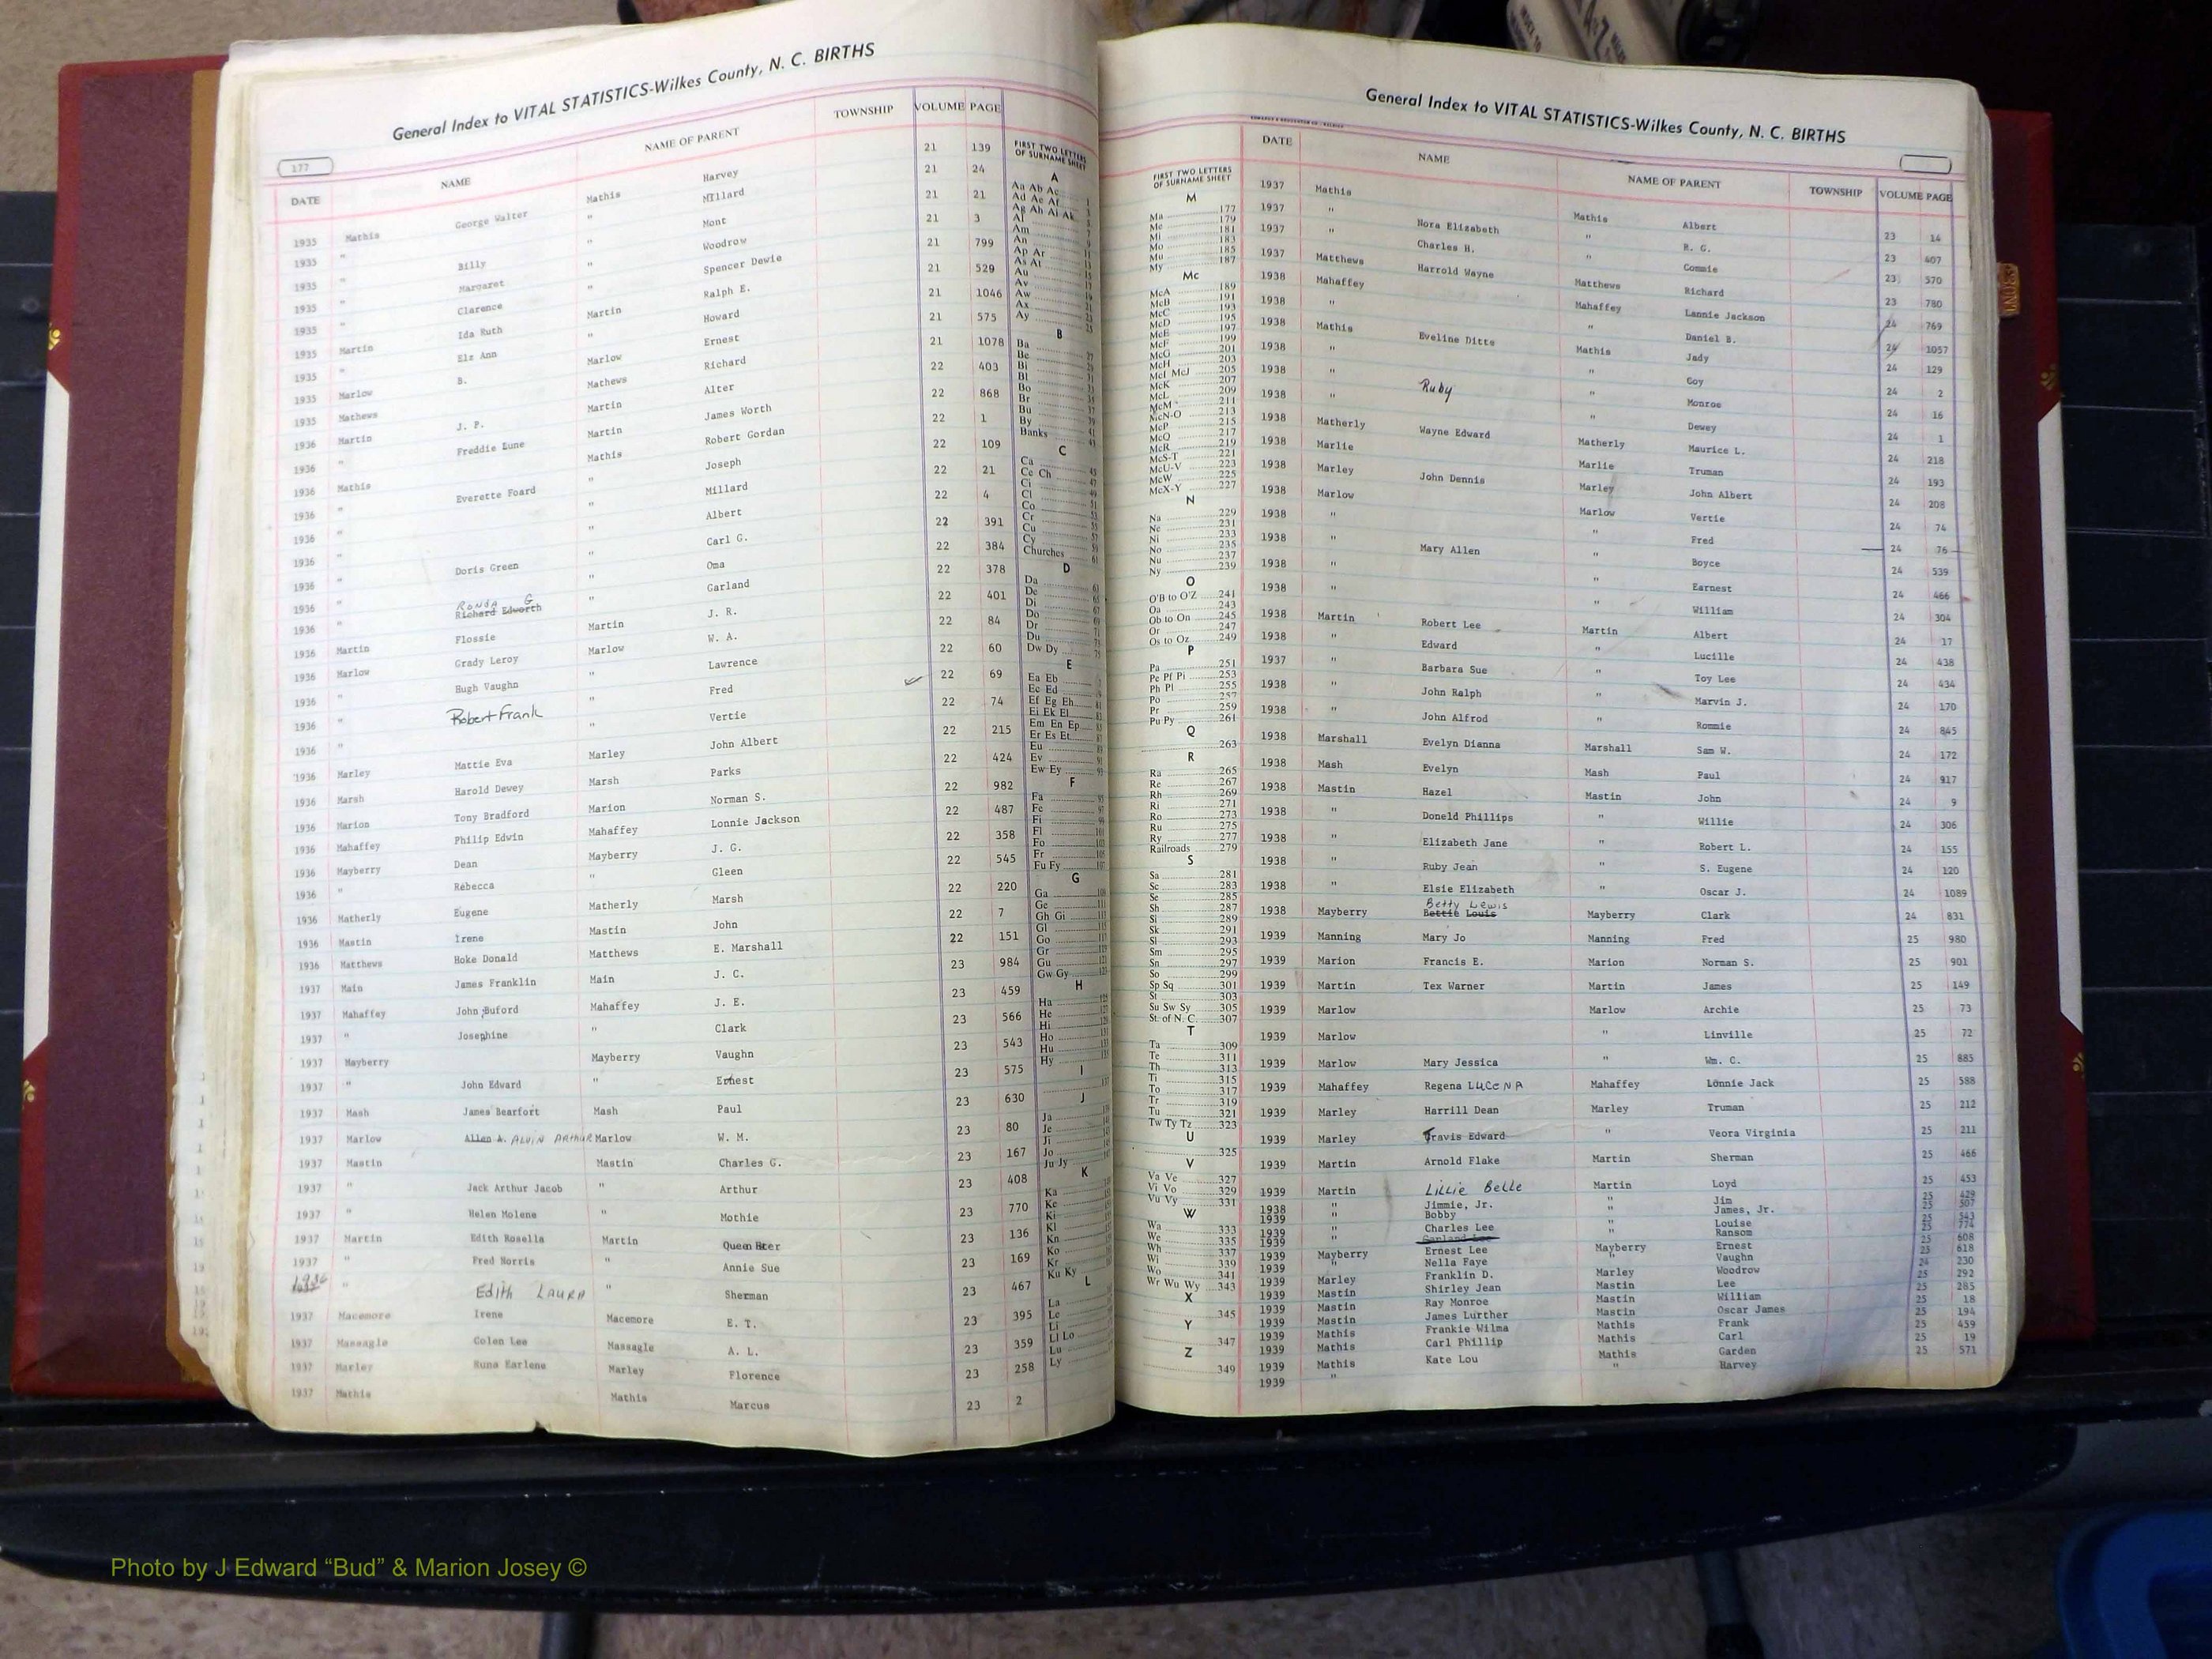 General Index to VITAL STATISTICS-Wilkes County, N. C. BIRTHS
177
DATE NAME NAME OF PARENT TOWNSHIP VOLUME PAGE
1935 Mathis George Walter Mathis Harvey 21 139
1935 " " Millard 21 24
1935 " Billy " Mont 21 21
1935 " Margaret " Woodrow 21 3
1935 " Clarence " Spencer Dewie 21 799
1935 Martin Ida Ruth Martin Ralph E. 21 529
1935 " Elz Ann " Howard 21 1046
1935 Marlow S. Marlow Ernest 21 575
1935 Mathews Mathews Richard 21 1078
1936 Martin J. P. Martin Alter 22 403
1936 " Freddie Eune Martin James Worth 22 868
1936 Mathis Mathis Robert Gordan 22 1
1936 " Everette Foard " Joseph 22 109
1936 " " Millard 22 21
1936 " " Albert 22 4
1936 " Doris Green " Carl G. 22 391
1936 " " Oma 22 384
1936 " Ronda G Richard Edworth " Garland 22 378
1936 Martin Flossie Martin J. R. 22 401
1936 Marlow Grady Leroy Marlow W. A. 22 84
1936 " Hugh Vaughn " Lawrence 22 60
1936 " Robert Frank " Fred 22 69
1936 " " Vertie 22 74
1936 Marley Mattie Eva Marley John Albert 22 215
1936 Marsh Harold Dewey Marsh Parks 22 424
1936 Marion Tony Bradford Marion Norman S. 22 982
1936 Mahaffey Philip Edwin Mahaffey Lonnie Jackson 22 487
1936 Mayberry Dean Mayberry J. G. 22 358
1936 " Rebecca " Gleen 22 545
1936 Matherly Eugene Matherly Marsh 22 220
1936 Mastin Irene Mastin John 22 7
1936 Matthews Hoke Donald Matthews E. Marshall 22 151
1937 Main James Franklin Main J. C. 23 984
1937 Mahaffey John Buford Mahaffey J. E. 23 459
1937 " Josephine " Clark 23 566
1937 Mayberry Mayberry Vaughn 23 543
1937 " John Edward " Ernest 23 575
1937 Mash James Bearfort Mash Paul 23 630
1937 Marlow Allen A. Alvin Arthur Marlow W. M. 23 80
1937 Mastin Mastin Charles G. 23 167
1937 " Jack Arthur Jacob " Arthur 23 408
1937 " Helen Molene " Mothie 23 770
1937 Martin Edith Rosella Martin Queen Ester 23 136
1937 " Fred Norris " Annie Sue 23 169
1936 " Edith Laura " Sherman 23 467
1937 Macemore Irene Macemore E. T. 23 395
1937 Massagle Colen Lee Massagle A. L. 23 359
1937 Marley Runa Earlene Marley Florence 23 258
1937 Mathis Mathis Marcus 23 2
FIRST TWO LETTERS
OF SURNAME SHEET
A
Aa Ab Ac 1
Ad Ae Af
Ag Ah Ai Ak
Al
Am
An
Ap Ar
As At
Au
Av
Aw
Ax
Ay
B
Ba
Be
Bi
Bl
Bo
Br
Bu
By
Banks
C
Ca
Ce Ch
Ci
Cl
Co
Cr
Cu
Cy
Churches
D
Da
De
Di
Do
Dr
Du
Dw Dy
E
Ea Eb
Ec Ed
Ef Eg Eh
Ei Ek El
Em En Ep
Er Es Et
Eu
Ev
Ew Ey
F
Fa
Fe
Fi
Fl
Fo
Fr
Fu Fy
G
Ga
Ge
Gh Gi
Gl
Go
Gr
Gu
Gw Gy
H
Ha
He
Hi
Ho
Hu
Hy
I
J
Ja
Je
Ji
Jo
Ju Jy
K
Ka
Ke
Ki
Kl
Kn
Ko
Kr
Ku Ky
L
La
Le
Li
Ll Lo
Lu
Ly
FIRST TWO LETTERS
OF SURNAME SHEET
M
Ma 177
Me 179
Mi 181
Mo 183
Mu 185
My 187
Mc
McA 189
McB 191
McC 193
McD 195
McE 197
McF 199
McG 201
McH 203
McI McJ 205
McK 207
McL 209
McM 211
McN-O 213
McP 215
McQ 217
McR 219
McS-T 221
McU-V 223
McW 225
McX-Y 227
N
Na 229
Ne 231
Ni 233
No 235
Nu 237
Ny 239
O
O'B to O'Z 241
Oa 243
Ob to On 245
Or 247
Os to Oz 249
P
Pa 251
Pe Pf Pi 253
Ph Pl 255
Po 257
Pr 259
Pu Py 261
Q
263
R
Ra 265
Re 267
Rh 269
Ri 271
Ro 273
Ru 275
Ry 277
Railroads 279
S
Sa 281
Sc 283
Se 285
Sh 287
Si 289
Sk 291
Sl 293
Sm 295
Sn 297
So 299
Sp Sq 301
St 303
Su Sw Sy 305
St. of N. C. 307
T
Ta 309
Te 311
Th 313
Ti 315
To 317
Tr 319
Tu 321
Tw Ty Tz 323
U
325
V
Va Ve 327
Vi Vo 329
Vu Vy 331
W
Wa 333
We 335
Wh 337
Wi 339
Wo 341
Wr Wu Wy 343
X
345
Y
347
Z
349
General Index to VITAL STATISTICS-Wilkes County, N. C. BIRTHS
DATE NAME NAME OF PARENT TOWNSHIP VOLUME PAGE
1937 Mathis Mathis Albert 23 14
1937 " Nora Elizabeth " R. G. 23 607
1937 " Charles H. " Commie 23 570
1937 Matthews Harrold Wayne Matthews Richard 23 780
1938 Mahaffey Mahaffey Lannie Jackson 24 769
1938 " " Daniel B. 24 1057
1938 Mathis Eveline Ditte Mathis Jady 24 129
1938 " " Coy 24 2
1938 " Ruby " Monroe 24 16
1938 " " Dewey 24 1
1938 Matherly Wayne Edward Matherly Maurice L. 24 218
1938 Marlie Marlie Truman 24 193
1938 Marley John Dennis Marley John Albert 24 208
1938 Marlow Marlow Vertie 24 74
1938 " " Fred 24 76
1938 " Mary Allen " Boyce 24 539
1938 " " Earnest 24 466
1938 " " William 24 304
1938 Martin Robert Lee Martin Albert 24 17
1938 " Edward " Lucille 24 438
1937 " Barbara Sue " Toy Lee 24 434
1938 " John Ralph " Marvin J. 24 170
1938 " John Alfrod " Rommie 24 845
1938 Marshall Evelyn Dianna Marshall Sam W. 24 172
1938 Mash Evelyn Mash Paul 24 917
1938 Mastin Hazel Mastin John 24 9
1938 " Doneld Phillips " Willie 24 306
1938 " Elizabeth Jane " Robert L. 24 155
1938 " Ruby Jean " S. Eugene 24 120
1938 " Elsie Elizabeth " Oscar J. 24 1089
1938 Mayberry Betty Lewis Bettie Louis Mayberry Clark 24 831
1939 Manning Mary Jo Manning Fred 25 980
1939 Marion Francis E. Marion Norman S. 25 901
1939 Martin Tex Warner Martin James 25 149
1939 Marlow Marlow Archie 25 73
1939 Marlow " Linville 25 72
1939 Marlow Mary Jessica " Wm. C. 25 885
1939 Mahaffey Regena Lucena Mahaffey Lonnie Jack 25 588
1939 Marley Harrill Dean Marley Truman 25 212
1939 Marley Travis Edward " Veora Virginia 25 211
1939 Martin Arnold Flake Martin Sherman 25 466
1939 Martin Lillie Belle Martin Loyd 25 453
1938 " Jimmie, Jr. " Jim 25 429
1939 " Bobby " James, Jr. 25 507
1939 " Charles Lee " Louise 25 543
1939 " Garland Lee " Ransom 25 774
1939 Mayberry Ernest Lee Mayberry Ernest 25 608
1939 " Nella Faye " Vaughn 25 618
1939 Marley Franklin D. Marley Woodrow 24 230
1939 Mastin Shirley Jean Mastin Lee 25 292
1939 Mastin Ray Monroe Mastin William 25 285
1939 Mastin James Lurther Mastin Oscar James 25 18
1939 Mathis Frankie Wilma Mathis Frank 25 194
1939 Mathis Carl Phillip Mathis Carl 25 459
1939 Mathis Kate Lou Mathis Garden 25 19
1939 " " Harvey 25 571
Photo by J Edward “Bud” & Marion Josey ©